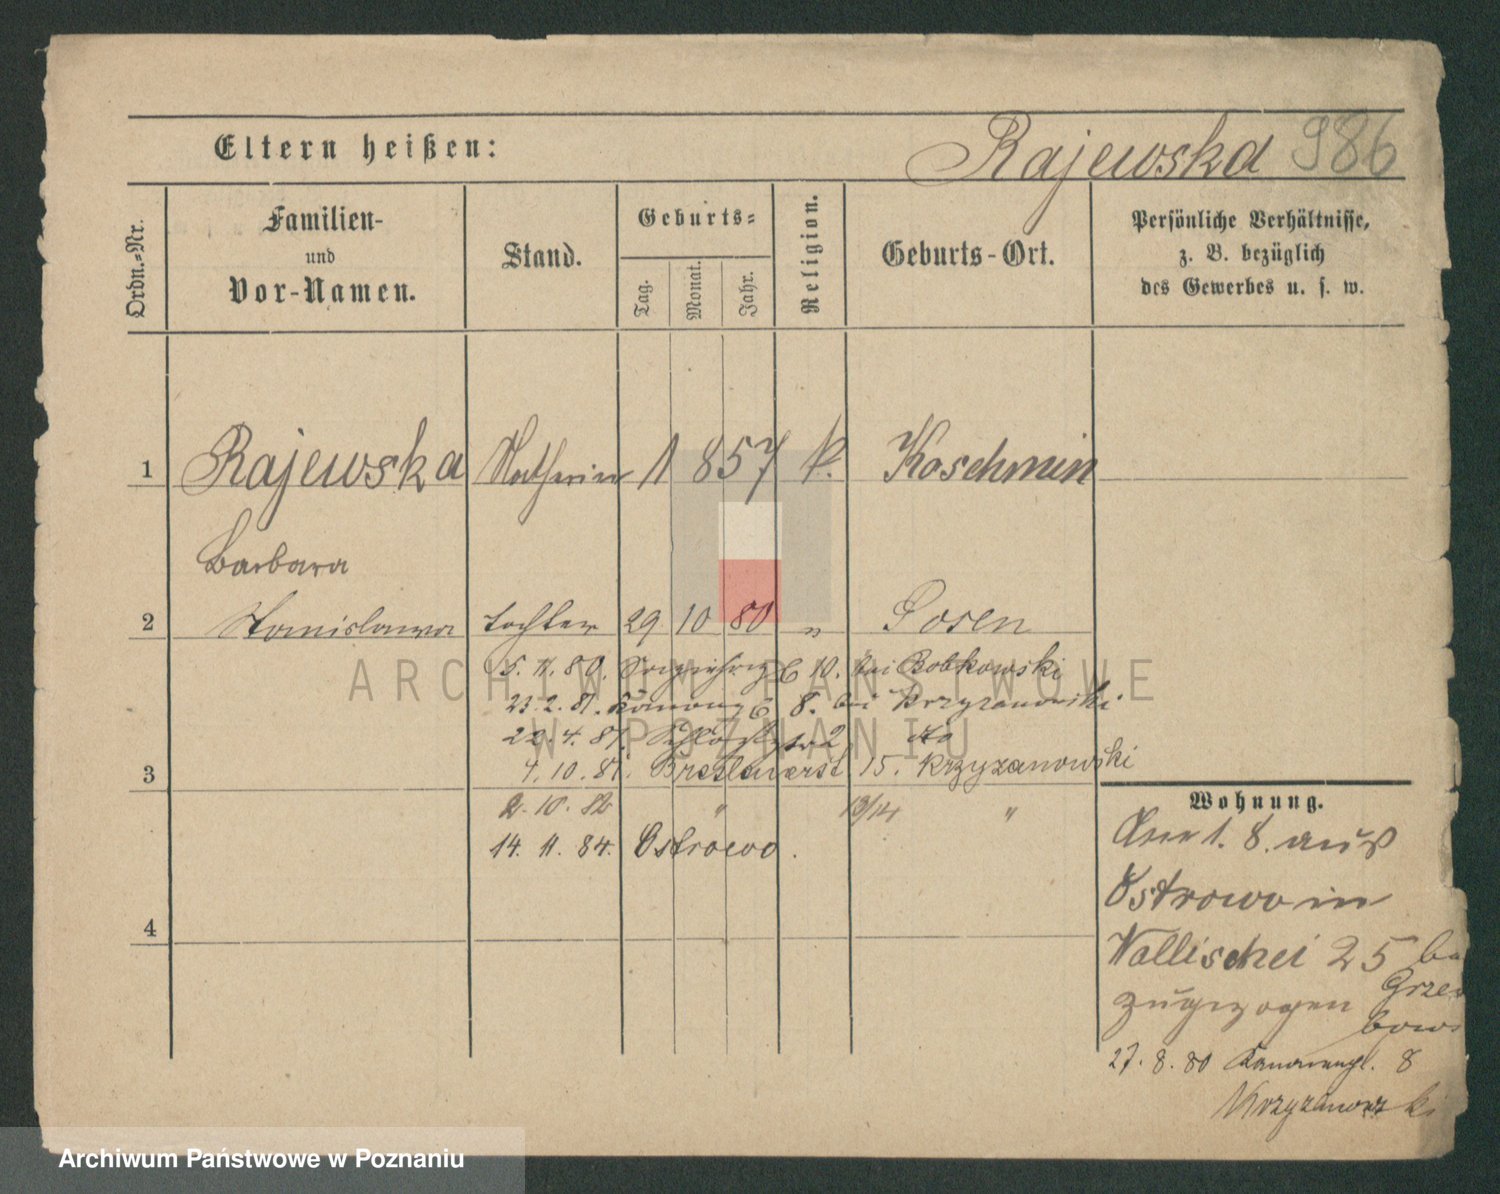 Eltern heißen: Rajewska 986
Ordn.-Nr.
Familien-
und
Vor-Namen.
Stand.
Geburts-
Tag. Monat. Jahr.
Religion.
Geburts-Ort.
Persönliche Verhältnisse,
z. B. bezüglich
des Gewerbes u. s. w.
1 Rajewska 1 857 k. Koschmin
Barbara
2 Stanislawa Tochter 29 10 80 " Posen
5. 11. 80. 10. bei Bobkowski
23. 2. 81. 8. bei Krzyzanowski
22. 4. 81. 2 dto
3 4. 10. 81. Breslauerst 15. Krzyzanowski
2. 10. 82 " 13/14 "
14. 11. 84. Ostrowo.
4
Wohnung.
Am 1. 8. aus
Ostrowo in
Wallischei 25 bei
zugezogen Grzem
bows
27. 8. 80 8
Krzyzanowski
ARCHIWUM PAŃSTWOWE
W POZNANIU
Archiwum Państwowe w Poznaniu